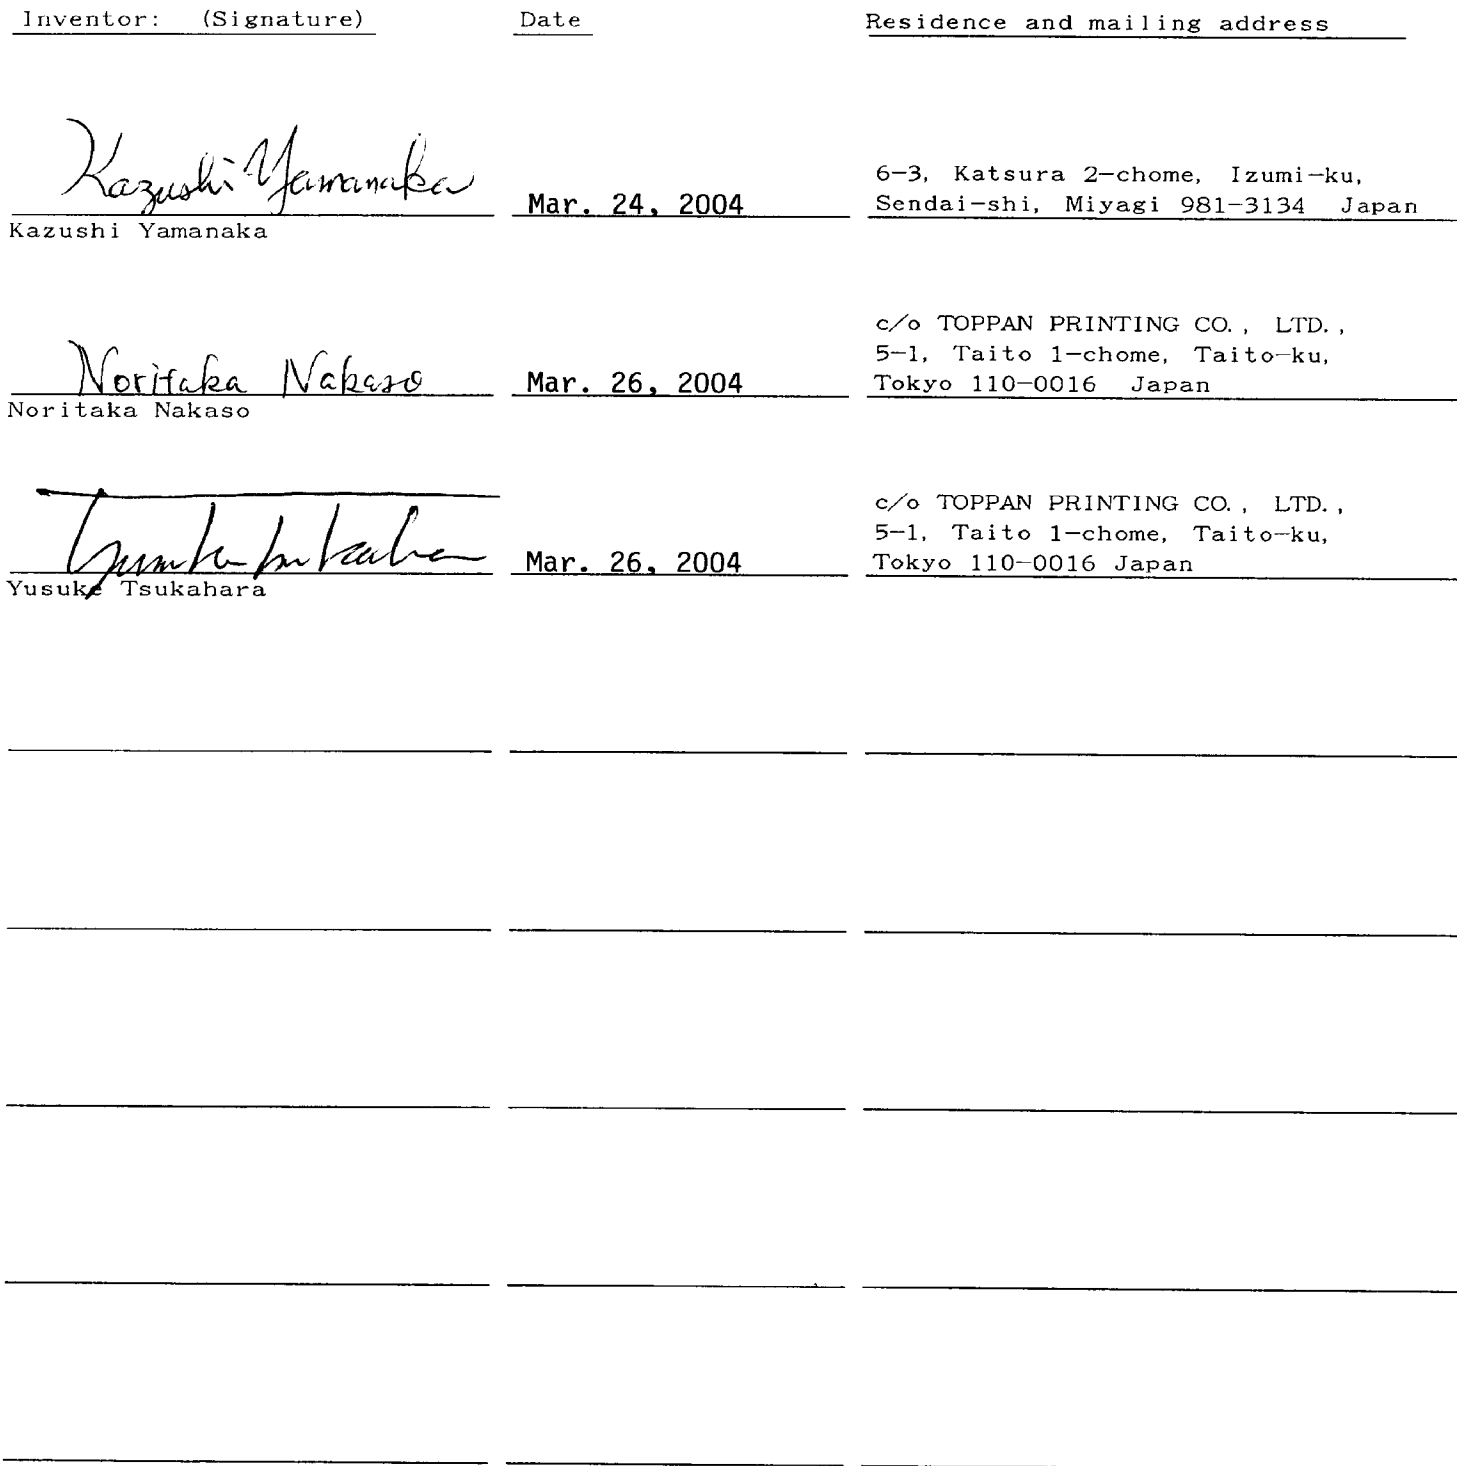 Inventor: (Signature) Date Residence and mailing address
Kazushi Yamanaka
Mar. 24, 2004
6-3, Katsura 2-chome, Izumi-ku,
Sendai-shi, Miyagi 981-3134 Japan
Kazushi Yamanaka
Noritaka Nakaso
Mar. 26, 2004
c/o TOPPAN PRINTING CO., LTD.,
5-1, Taito 1-chome, Taito-ku,
Tokyo 110-0016 Japan
Noritaka Nakaso
Mar. 26, 2004
c/o TOPPAN PRINTING CO., LTD.,
5-1, Taito 1-chome, Taito-ku,
Tokyo 110-0016 Japan
Yusuke Tsukahara